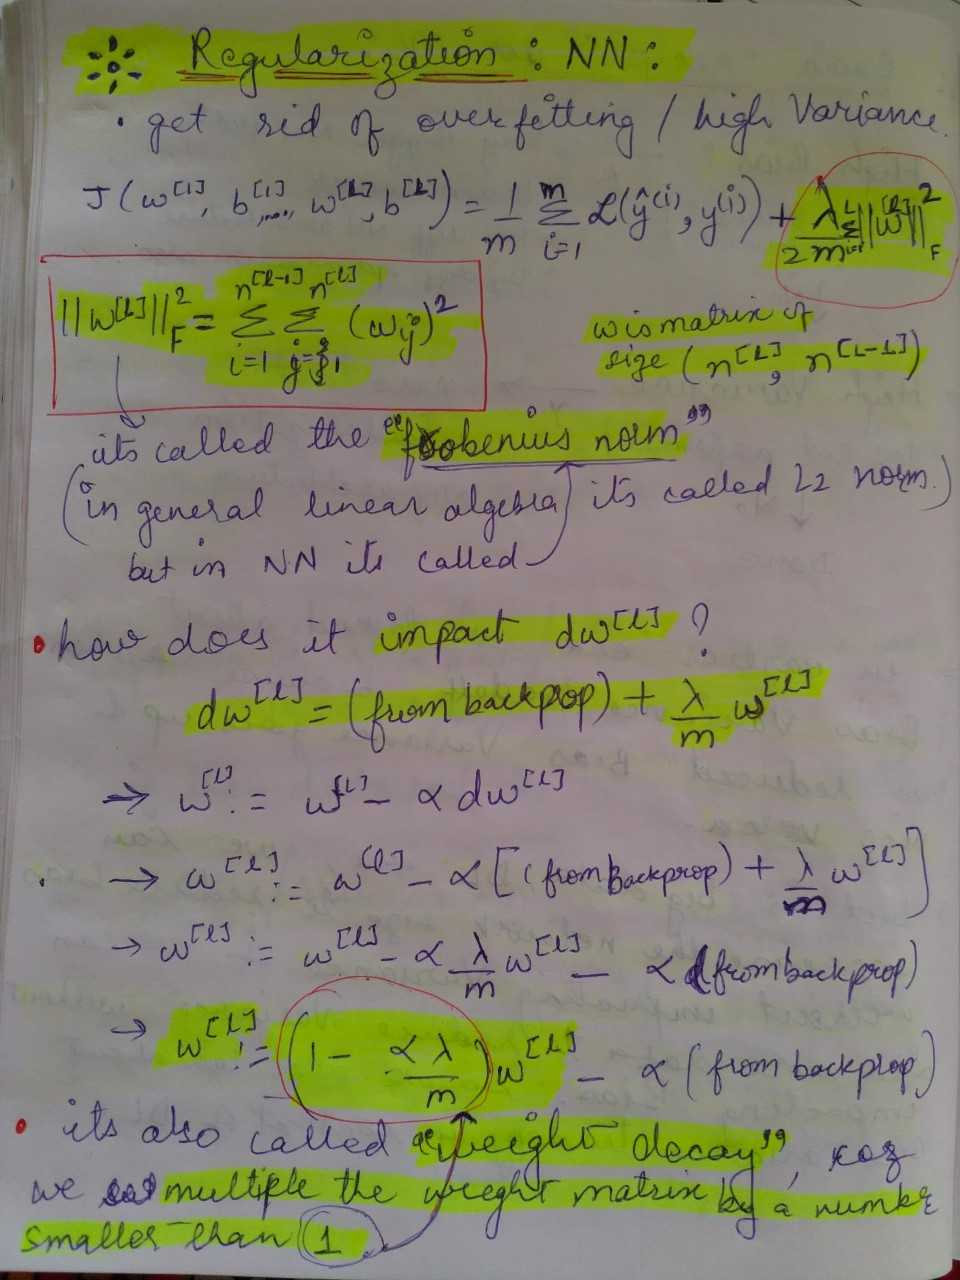 Regularization : NN :
• get rid of overfitting / high Variance.
J(w^[1], b^[1], ..., w^[L], b^[L]) = 1/m Σ_{i=1}^{m} L(ŷ^(i), y^(i)) + λ/2m Σ_{l=1}^{L} ||w^[l]||²_F
||w^[l]||²_F = Σ_{i=1}^{n^[l-1]} Σ_{j=1}^{n^[l]} (w_ij)²
w is matrix of
size (n^[L], n^[L-1])
its called the "frobenius norm"
(in general linear algebra its called L2 norm.)
but in NN its called
• how does it impact dw^[l] ?
dw^[l] = (from backprop) + λ/m w^[l]
→ w^[l] := w^[l] - α dw^[l]
→ w^[l] := w^[l] - α [(from Backprop) + λ/m w^[l]]
→ w^[l] := w^[l] - α λ/m w^[l] - α (from backprop)
→ w^[l] := (1 - αλ/m) w^[l] - α (from backprop)
• its also called "weight decay", coz
we multiple the weight matrix by a number
smaller than 1